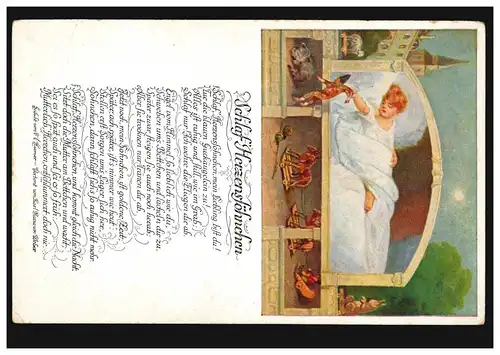 Schlaf Herzenssöhnchen
Schlaf, Herzenssöhnchen, mein Liebling bist du!
Tue die blauen Guckäugelein zu.
Alles ist ruhig und still wie im Grab.
Schlaf nur, ich wehre die Fliegen dir ab.
Engel vom Himmel so lieblich wie du,
Schweben ums Bettchen und lächeln dir zu.
Später zwar steigen sie auch noch herab,
Aber sie trocknen nur Tränen dir ab.
Jetzt noch, mein Söhnchen, ist goldene Zeit,
Später, ach später, ist's nimmer wie heut.
Stellen erst Sorgen ums Lager sich her,
Söhnchen, dann schläft sich's so ruhig nicht mehr.
Schlaf, Herzenssöhnchen, und kommt gleich die Nacht,
Sitzt doch die Mutter am Bettchen und wacht.
Sei es so spät auch und sei es so früh
Mutterlieb, Herzchen, entschlummert doch nie.
Gedicht von Hiemer – Vertont von Karl Maria von Weber